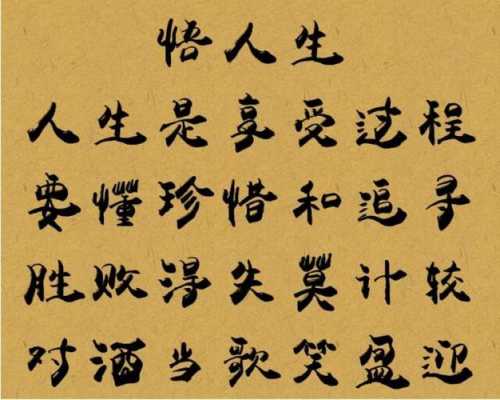 悟人生
人生是享受过程
要懂珍惜和追寻
胜败得失莫计较
对酒当歌笑盈迎